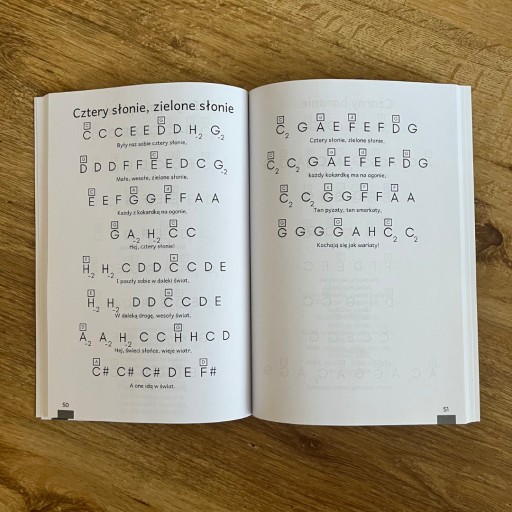 Cztery słonie, zielone słonie
C C C E E D D D H-2 G-2
Były raz sobie cztery słonie,
D D D F F E E D C G-2
Małe, wesołe, zielone słonie,
E E F G G F F A A
Każdy z kokardką na ogonie,
G A-2 H-2 C C
Hej, cztery słonie!
H-2 H-2 C D D C C D E
I poszły sobie w daleki świat,
H-2 H-2 D D C C D E
W daleką drogę, wesoły świat,
A-2 A-2 H-2 C C H H C D
Hej, świeci słońce, wieje wiatr,
C# C# C# D E F#
A one idą w świat.
50
C2 G A E F E F D G
Cztery słonie, zielone słonie,
C2 C2 G A E F E F D G
każdy kokardkę ma na ogonie,
C2 C2 G G F F A A
Ten pyzaty, ten smarkaty,
G G G G A H C2 C2
Kochają się jak wariaty!
51